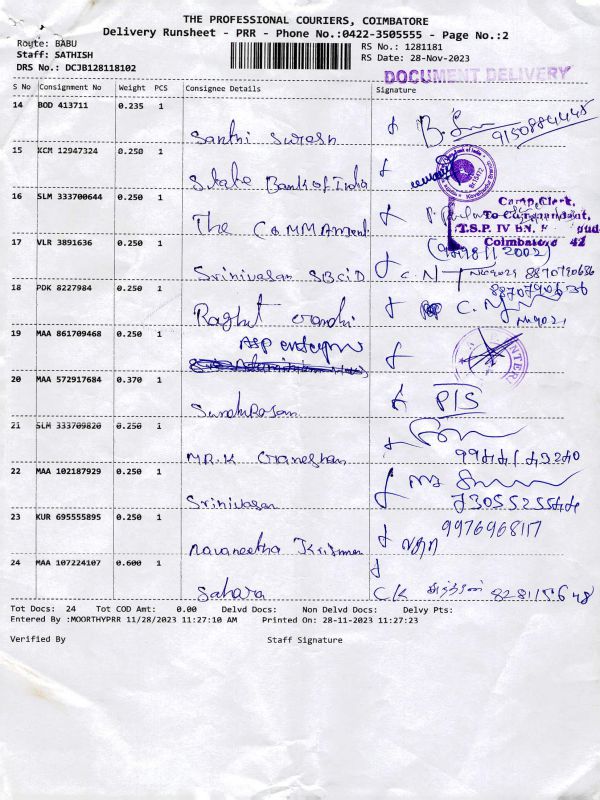 THE PROFESSIONAL COURIERS, COIMBATORE
Delivery Runsheet - PRR - Phone No.:0422-3505555 - Page No.:2
Route: BABU
Staff: SATHISH
DRS No.: DCJB128118102
RS No.: 1281181
RS Date: 28-Nov-2023
DOCUMENT DELIVERY
S No Consignment No Weight PCS Consignee Details Signature
14 BOD 413711 0.235 1 Santhi Suresh 9150884445
15 KCM 12947324 0.250 1 State Bank of India
16 SLM 333700644 0.250 1 The COMMANdent
Camp Clerk,
To Commandant,
T.S.P. IV BN.
Coimbatore 42
17 VLR 3891636 0.250 1 Srinivasan SBCID C. N 8870790686
18 PDK 8227984 0.250 1 Raghul Gandhi C. N
19 MAA 861709468 0.250 1 ASP enterprises
20 MAA 572917684 0.370 1 P/S
21 SLM 333709820 0.250 1 MR. K Ganeshan
22 MAA 102187929 0.250 1 Srinivasan
23 KUR 695555895 0.250 1 Navaneetha Krisnan 9976968117
24 MAA 107224107 0.600 1 Sahara C.K
Tot Docs: 24 Tot COD Amt: 0.00 Delvd Docs: Non Delvd Docs: Delvy Pts:
Entered By :MOORTHYPRR 11/28/2023 11:27:10 AM Printed On: 28-11-2023 11:27:23
Verified By Staff Signature